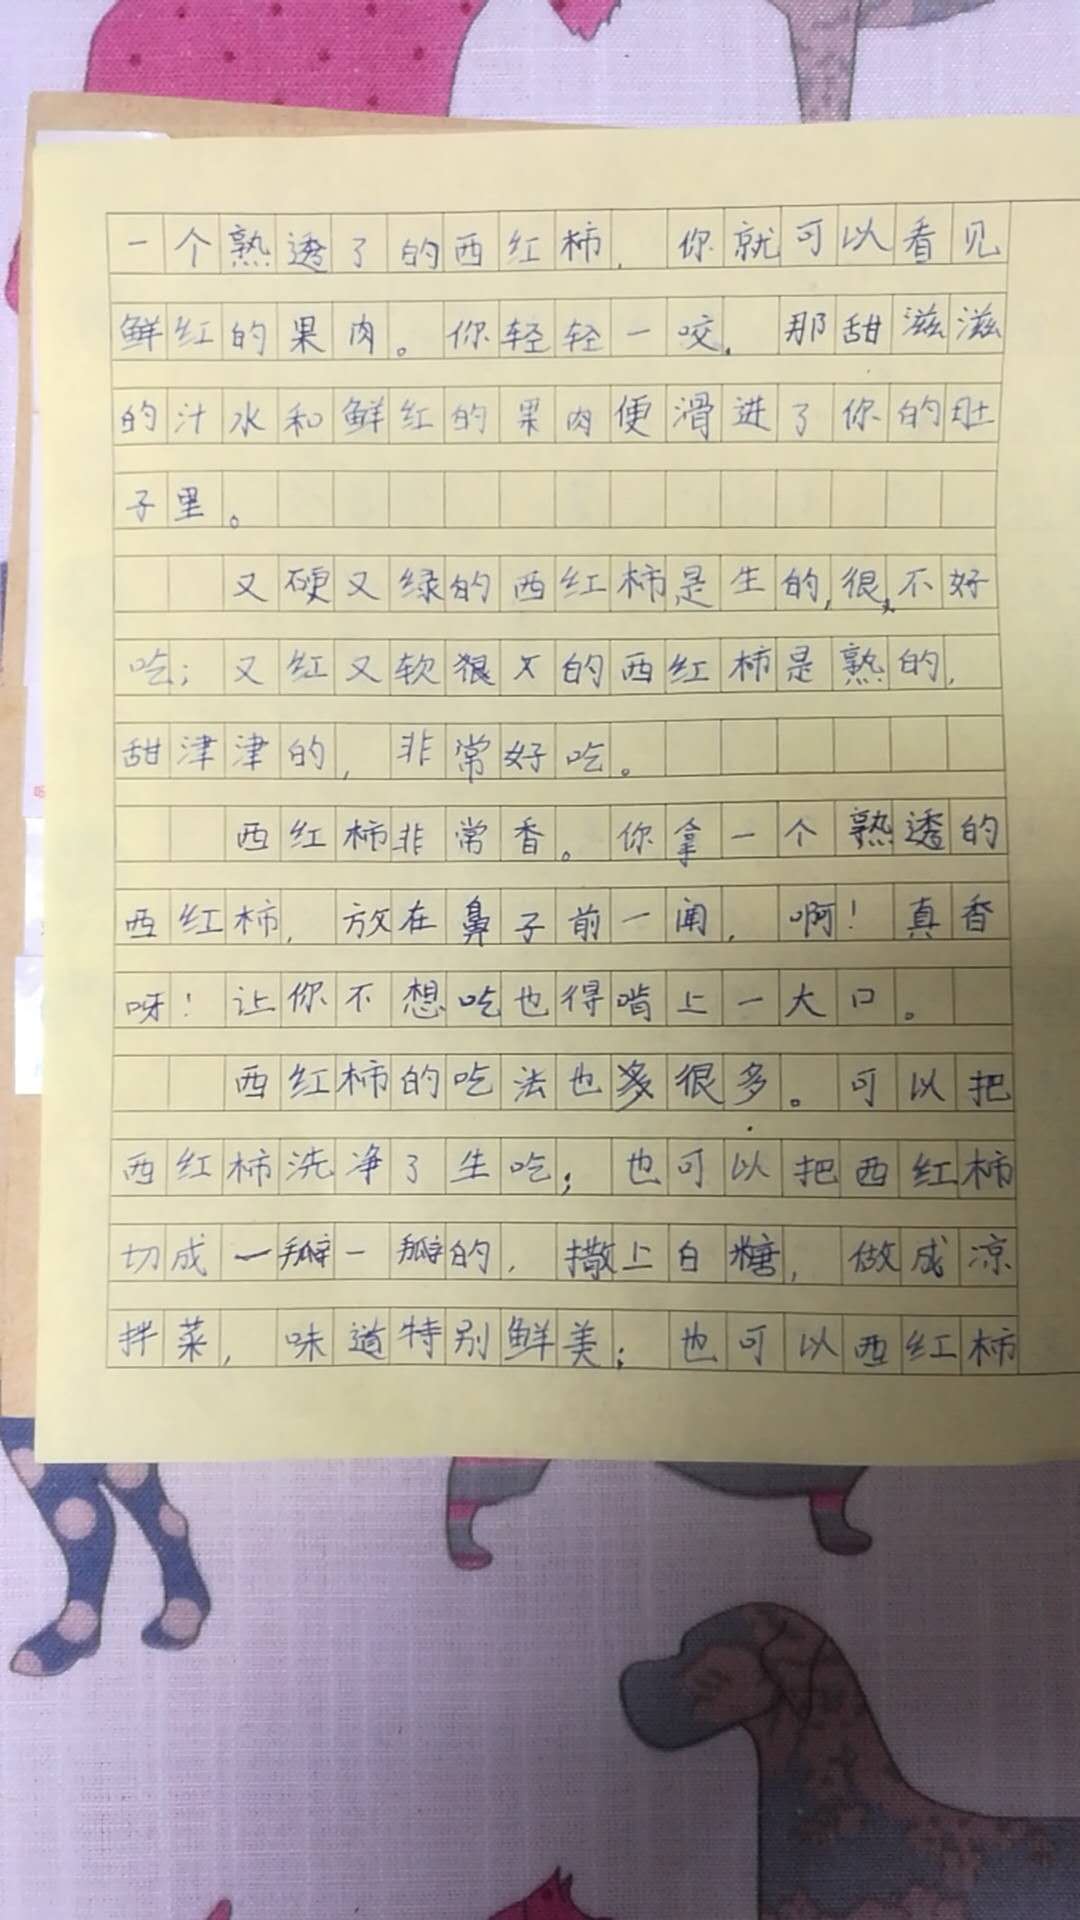 一个熟透了的西红柿，你就可以看见
鲜红的果肉。你轻轻一咬，那甜滋滋
的汁水和鲜红的果肉便滑进了你的肚
子里。
又硬又绿的西红柿是生的，很不好
吃；又红又软的西红柿是熟的，
甜津津的，非常好吃。
西红柿非常香。你拿一个熟透的
西红柿，放在鼻子前一闻，啊！真香
呀！让你不想吃也得啃上一大口。
西红柿的吃法也很多。可以把
西红柿洗净了生吃；也可以把西红柿
切成一瓣一瓣的，撒上白糖，做成凉
拌菜，味道特别鲜美；也可以西红柿